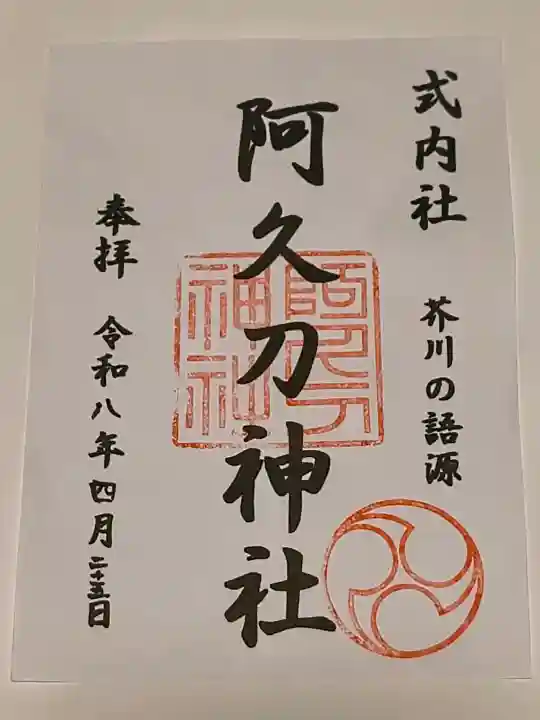 式内社
芥川の語源
阿久刀神社
阿久刀
神社
奉拝
令和八年四月二十五日